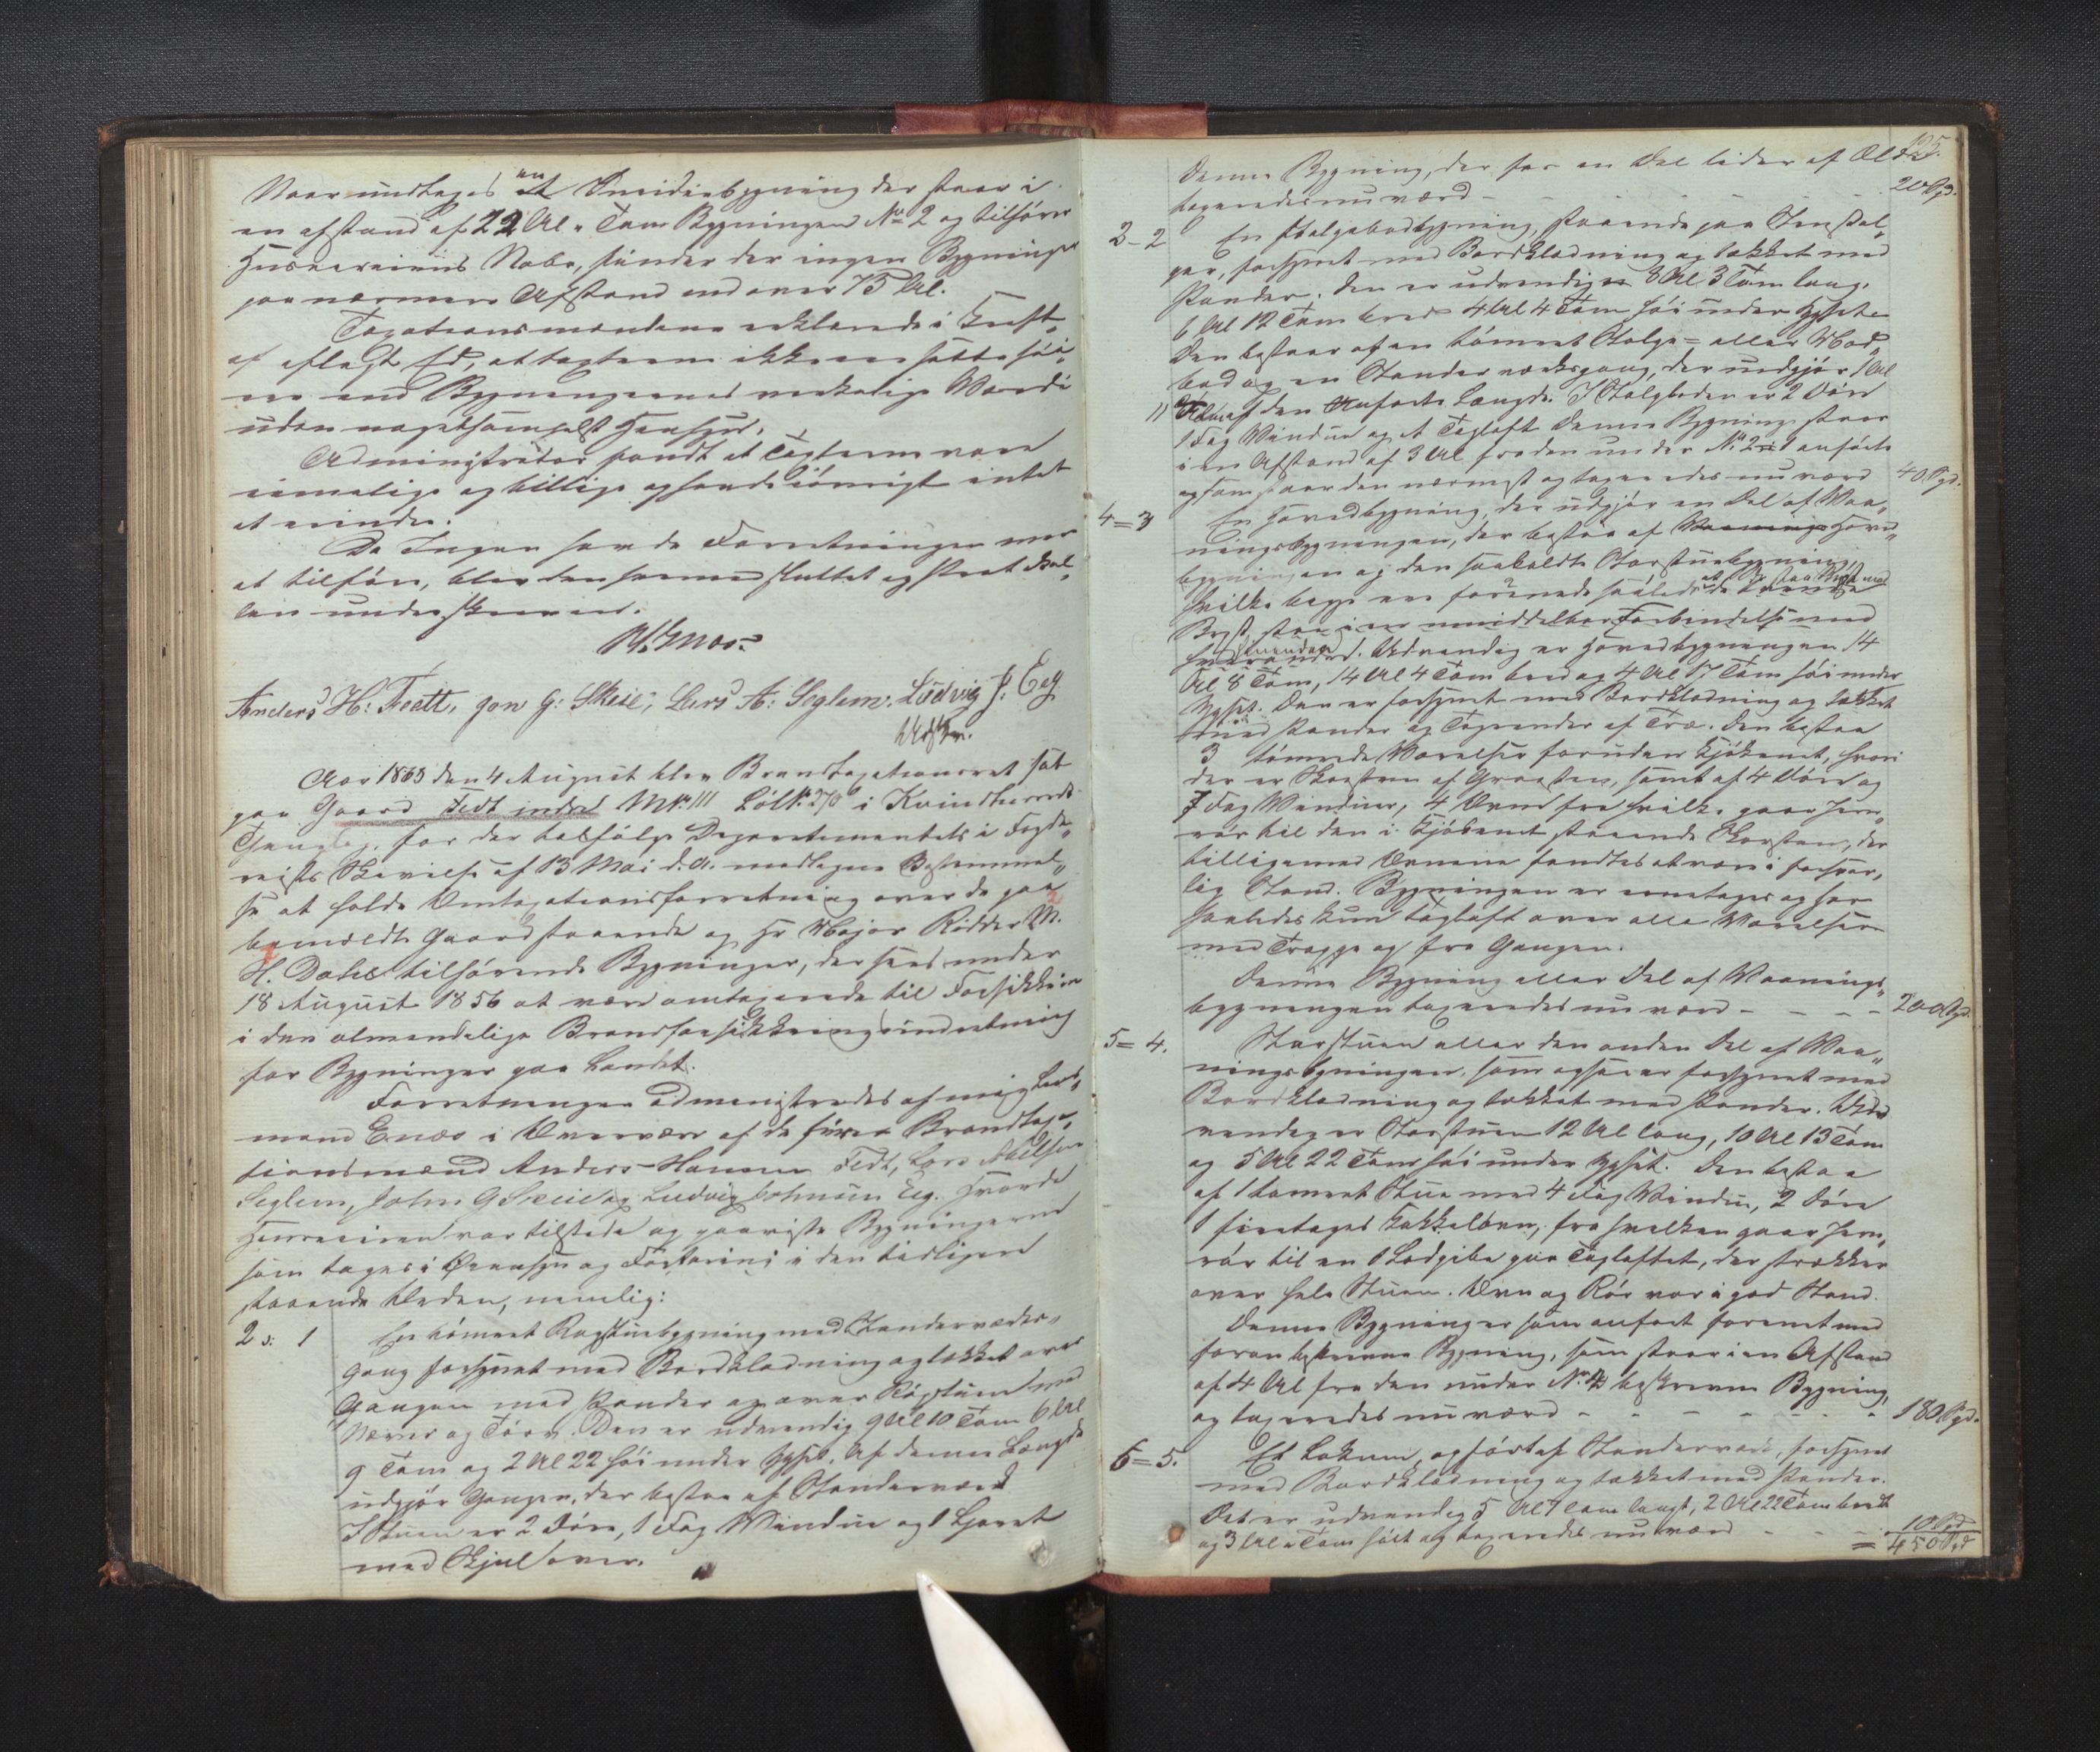 Naar undtages en Smidiebygning der staar i
en afstand af 22 Al " Tom Bygningen No 2 og tilhører
Huseierens Nabo, findes der ingen Bygninger
paa nærmere Afstand end over 75 Al.
Taxationsmændene erklærede i Kraft
af aflagt Ed, at taxterne ikke ere satte høi„
ere end Bygningernes virkelige Værdi
uden nogetsomhelst Hensyn.
Administrator fandt at Taxterne vare
rimelige og billige og havde iøvrigt intet
at erindre.
Da Ingen havde Forretningen mer
at tilføre, blev den hermed sluttet og strax Bol„
len underskreven.
Anders H: Fedtt, Jon G: Skeie; Lars A: Seglem. Ludvig J: Eeg
Aar 1863 den 4 August blev Brandtaxationsret sat
paa Gaard Fedt indre M No 111 Løb No 270 i Kvindherreds
Thinglag, for der ifølge Departementets i Fogde„
riets Skrivelse af 13 Mai d. A. modtagne Bestemmel„
se at holde Omtaxationsforretning over de paa
bemeldte Gaard staaende og Hr Major Ridder M.
H. Dahls tilhørende Bygninger, der sees under
18 August 1856 at være omtaxerede til Forsikkring
i den almindelige Brandforsikkringsindretning
for Bygninger paa Landet.
Forretningen administredes af mig Lens„
mand Enæs i Overvær af de svorne Brandtaxa„
tionsmænd Anders Hansen Fedt, Lars Abelsen
Seglem, John G Skeie og Ludvig Johnsen Eeg. Hvorda
Huseieren var tilstede og paaviste Bygningerne
som toges i Øiensyn og Forklaring i den tidligere
staaende Orden, nemlig:
2 s: 1 En tømret Røgstuebygning med Stenderværks„
Gang forsynet med Bordklædning og tækket over
Gangen med Pander og over Røgstuen med
Næver og Tørv. Den er udvendig 9 Al 10 Tom 6 Al
9 Tom og 2 Al 22 høi under Gesims. Af denne Længde
udgjør Gangen, der bestaar af Stenderværk
I Stuen er 2 Døre, 1 Fag Vindue og 1 Ljoret
med Skjul over.
125.
Denne Bygning, der for en Del lider af Ælde
taxeredes nu værd - - - 20 Spd.
3-2 En Stolpebodbygning, staaende paa Stenstol„
per, forsynet med Bordklædning og tækket med
Pander. Den er udvendig 8 Al 3 Tom lang,
6 Al 12 Tom bred 4 Al 4 Tom høi under
Den bestaar af en tømret Stolpe= eller Mad„
bod og en Stenderværksgang, der udgjør 1 Al
11 Tom af den anførte Længde. I Stolpboden er 2 Døre
1 Fag Vindue og et Tagloft. Denne Bygning staar
i en Afstand af 3 Al fra den under No 1 anførte
og som staar den nærmest og taxeredes nu værd 40 Spd.
4=3 En Hovedbygning, der udgjør en Del af Vaa„
ningsbygningen, der bestaar af Hoved„
bygningen og den saakaldte Storstuebygning,
hvilke begge ere forenede saaledes at de staa Bryst mod
Bryst staa i en umiddelbar Forbindelse med
hinanden. Udvendig er Hovedbygningen 14
Al 8 Tom, 14 Al 4 Tom bred og 4 Al 17 Tom høi under
Den er forsynet med Bordklædning og tækket
med Pander og Tagrender af Træ. Den bestaar
3 tømrede Værelser foruden Kjøkkenet, hvori
der er Skorsten af Graasten, samt af 4 Døre og
7 Fag Vinduer, 4 Ovne fra hvilke gaar Jern„
rør til den i Kjøkkenet staaende Skorsten, der
tilligemed Ovnene fandtes at være i forsvar„
lig Stand. Bygningen er eenetages og har
saaledes kun Tagloft over alle Værelser
med Trappe op fra Gangen.
Denne Bygning eller Del af Vaanings„
bygningen taxeredes nu værd - - - - 200 Spd.
5=4. Storstuen eller den anden Del af Vaa„
ningsbygningen, som ogsaa er forsynet med
Bordklædning og tækket med Pander. Ud„
vendig er Storstuen 12 Al lang, 10 Al 13 Tom
og 5 Al 22 Tom høi under Gesims. Den bestaar
af 1 tømret Stue med 4 Fag Vindue, 2 Døre
1 fireetages Kakkelovn, fra hvilken gaar Jern„
rør til en Lodpibe paa Tagloftet, der strækker
over hele Stuen. Ovn og Rør var i god Stand.
Denne Bygning er som anført forenet med
foranbeskrevne Bygning, som staar i en Afstand
af 4 Al fra den under No 2 beskrevne Bygning,
og taxeredes nu værd - - - - - - 180 Spd.
6=5. Et Lokum, opført af Stenderværk, forsynet
med Bordklædning og tækket med Pander.
Det er udvendig 5 Al 7 Tom langt, 2 Al 22 Tom bredt
og 3 Al " Tom høit og taxeredes nu værd - - - 10 Spd
= 450 Spd